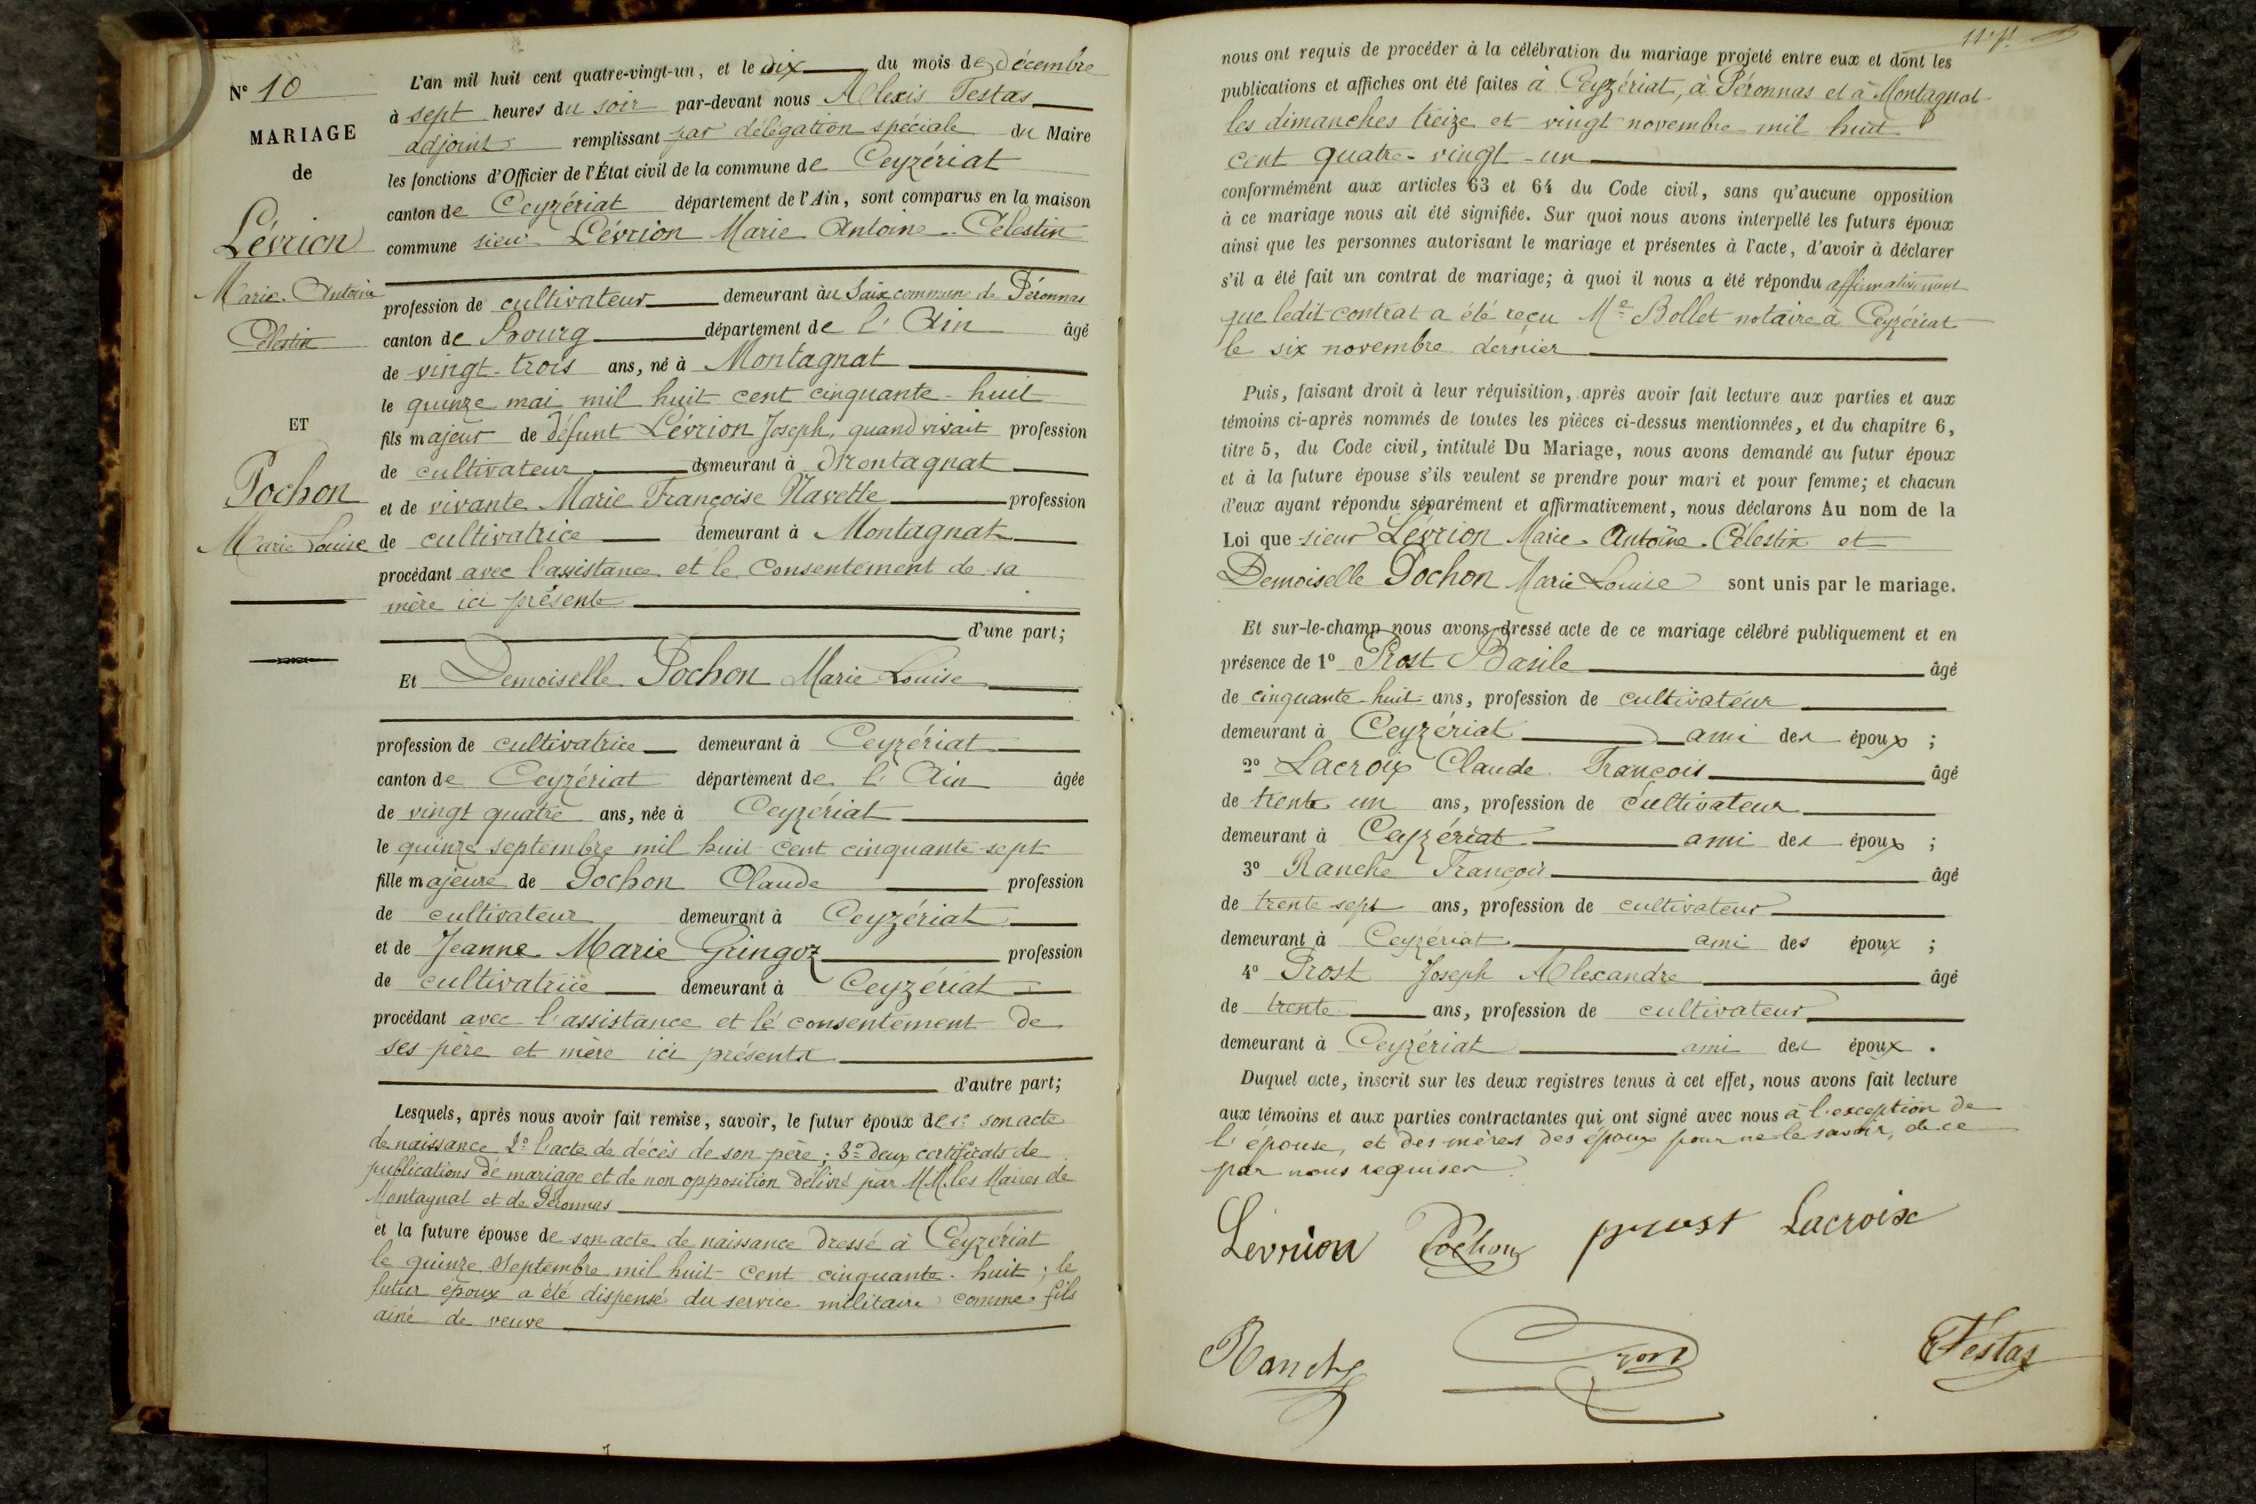 N° 10
MARIAGE
de
Lévrion
Marie Antoine
Célestin
ET
Pochon
Marie Louise
L'an mil huit cent quatre-vingt-un, et le dix du mois de décembre
à sept heures du soir par-devant nous Alexis Festas
adjoint remplissant par délégation spéciale du Maire
les fonctions d'Officier de l'État civil de la commune de Ceyzériat
canton de Ceyzériat département de l'Ain, sont comparus en la maison
commune sieur Lévrion Marie Antoine Célestin
profession de cultivateur demeurant au Saix commune de Péronnas
canton de Bourg département de l'Ain âgé
de vingt-trois ans, né à Montagnat
le quinze mai mil huit cent cinquante-huit
fils majeur de défunt Lévrion Joseph, quand vivait profession
de cultivateur demeurant à Montagnat
et de vivante Marie Françoise Navette profession
de cultivatrice demeurant à Montagnat
procédant avec l'assistance et le consentement de sa
mère ici présente
d'une part;
Et Demoiselle Pochon Marie Louise
profession de cultivatrice demeurant à Ceyzériat
canton de Ceyzériat département de l'Ain âgée
de vingt quatre ans, née à Ceyzériat
le quinze septembre mil huit cent cinquante-sept
fille majeure de Pochon Claude profession
de cultivateur demeurant à Ceyzériat
et de Jeanne Marie Gringoz profession
de cultivatrice demeurant à Ceyzériat
procédant avec l'assistance et le consentement de
ses père et mère ici présents
d'autre part;
Lesquels, après nous avoir fait remise, savoir, le futur époux de 1° son acte
de naissance 2° l'acte de décès de son père; 3° deux certificats de
publications de mariage et de non opposition délivré par MM. les Maires de
Montagnat et de Péronnas
et la future épouse de son acte de naissance dressé à Ceyzériat
le quinze Septembre mil huit cent cinquante-huit; le
futur époux a été dispensé du service militaire comme fils
ainé de veuve
nous ont requis de procéder à la célébration du mariage projeté entre eux et dont les
publications et affiches ont été faites à Ceyzériat, à Péronnas et à Montagnat
les dimanches treize et vingt novembre mil huit
cent quatre-vingt-un
conformément aux articles 63 et 64 du Code civil, sans qu'aucune opposition
à ce mariage nous ait été signifiée. Sur quoi nous avons interpellé les futurs époux
ainsi que les personnes autorisant le mariage et présentes à l'acte, d'avoir à déclarer
s'il a été fait un contrat de mariage; à quoi il nous a été répondu affirmativement
que ledit contrat a été reçu Me Bollet notaire à Ceyzériat
le six novembre dernier
Puis, faisant droit à leur réquisition, après avoir fait lecture aux parties et aux
témoins ci-après nommés de toutes les pièces ci-dessus mentionnées, et du chapitre 6,
titre 5, du Code civil, intitulé Du Mariage, nous avons demandé au futur époux
et à la future épouse s'ils veulent se prendre pour mari et pour femme; et chacun
d'eux ayant répondu séparément et affirmativement, nous déclarons Au nom de la
Loi que sieur Lévrion Marie Antoine Célestin et
Demoiselle Pochon Marie Louise sont unis par le mariage.
Et sur-le-champ nous avons dressé acte de ce mariage célébré publiquement et en
présence de 1° Prost Basile âgé
de cinquante-huit ans, profession de cultivateur
demeurant à Ceyzériat ami des époux;
2° Lacroix Claude François âgé
de trente un ans, profession de cultivateur
demeurant à Ceyzériat ami des époux;
3° Ranche François âgé
de trente sept ans, profession de cultivateur
demeurant à Ceyzériat ami des époux;
4° Prost Joseph Alexandre âgé
de trente ans, profession de cultivateur
demeurant à Ceyzériat ami des époux.
Duquel acte, inscrit sur les deux registres tenus à cet effet, nous avons fait lecture
aux témoins et aux parties contractantes qui ont signé avec nous à l'exception de
l'épouse, et des mères des époux pour ne le savoir, de ce
par nous requises
Lévrion Pochon prost Lacroix
Ranche Festas